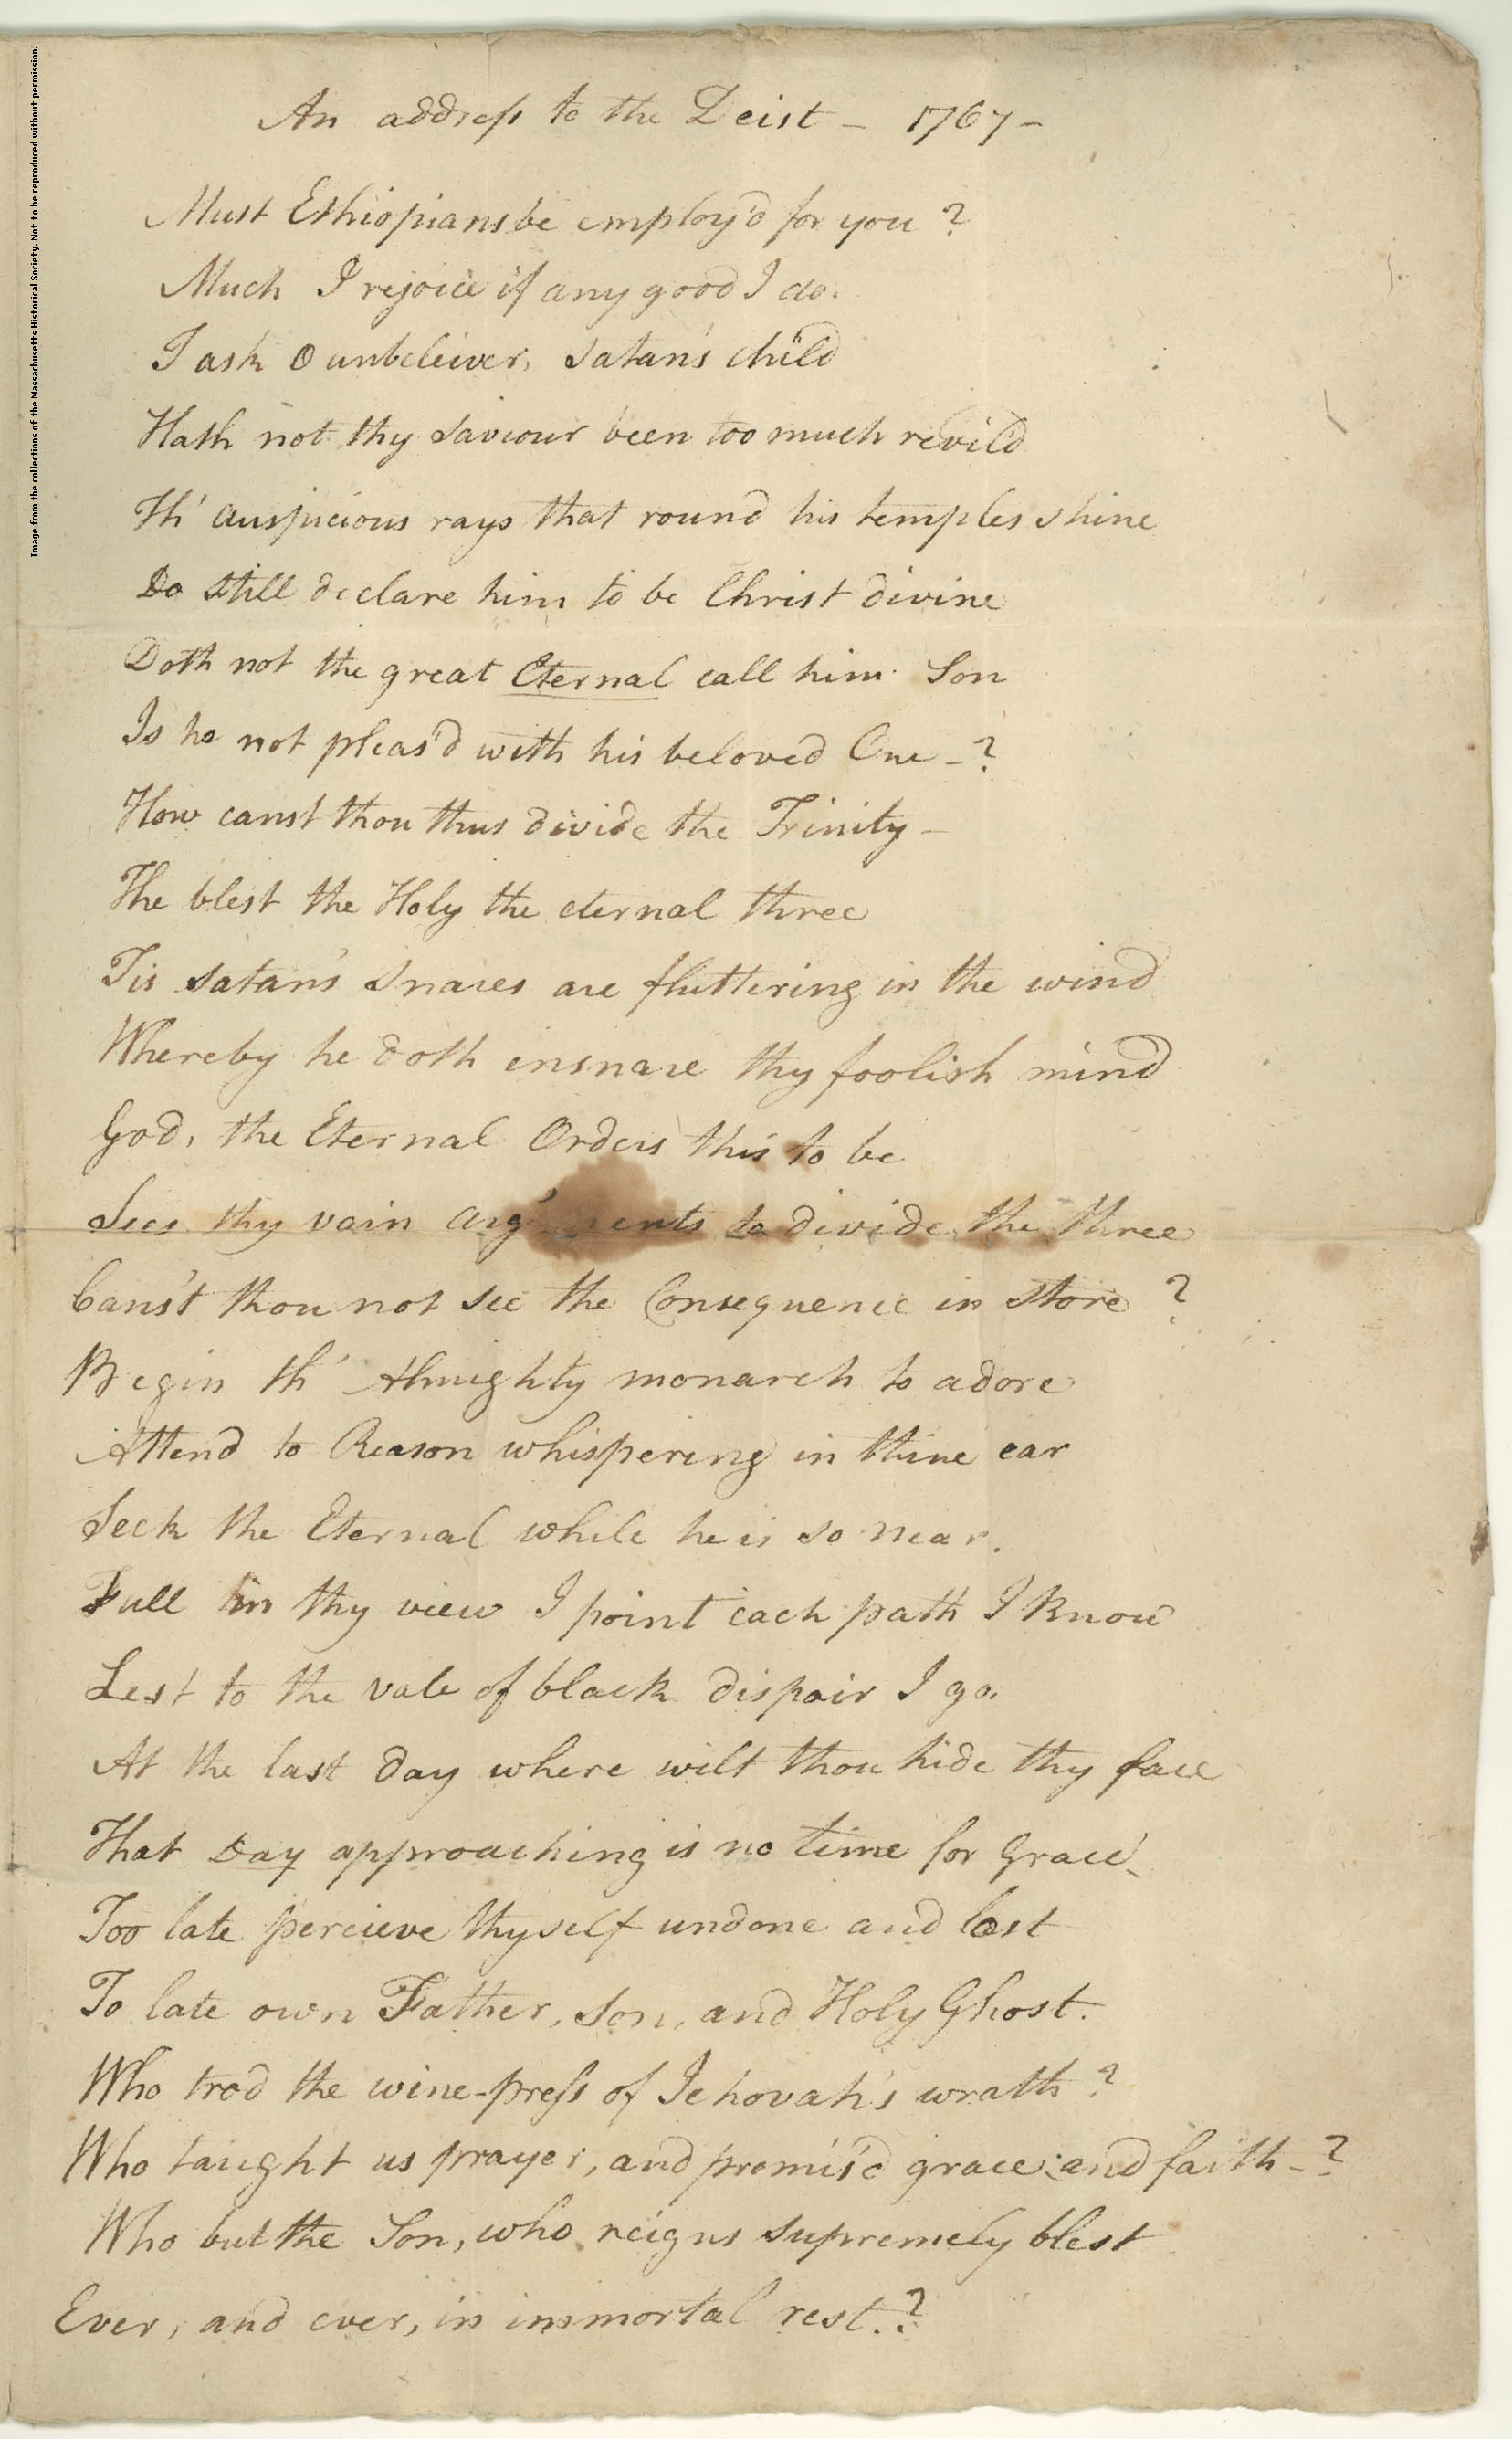 Image from the collections of the Massachusetts Historical Society. Not to be reproduced without permission.
An address to the Deist – 1767 –
Must Ethiopians be employ'd for you?
Much I rejoice if any good I do.
I ask O unbeleiver, satan's child
Hath not thy saviour been too much revil'd
Th' auspicious rays that round his temples shine
Do still declare him to be Christ divine
Doth not the great Eternal call him Son
Is he not pleas'd with his beloved One –?
How canst thou thus divide the Trinity –
The blest the Holy the eternal three
Tis satan's snares are fluttering in the wind
Whereby he doth ensnare thy foolish mind
God, the Eternal Orders this to be
Sees thy vain arg'ments to divide the three
Cans't thou not see the Consequence in store?
Begin th' Almighty monarch to adore
Attend to Reason whispering in thine ear
Seek the Eternal while he is so near.
Full in thy view I point each path I know
Lest to the vale of black dispair I go.
At the last day where wilt thou hide thy face
That Day approaching is no time for Grace –
Too late percieve thyself undone and lost
To late own Father, Son, and Holy Ghost.
Who trod the wine-press of Jehovah's wrath?
Who taught us prayer, and promis'd grace and faith –?
Who but the Son, who reigns supremely blest
Ever, and ever, in immortal rest.?